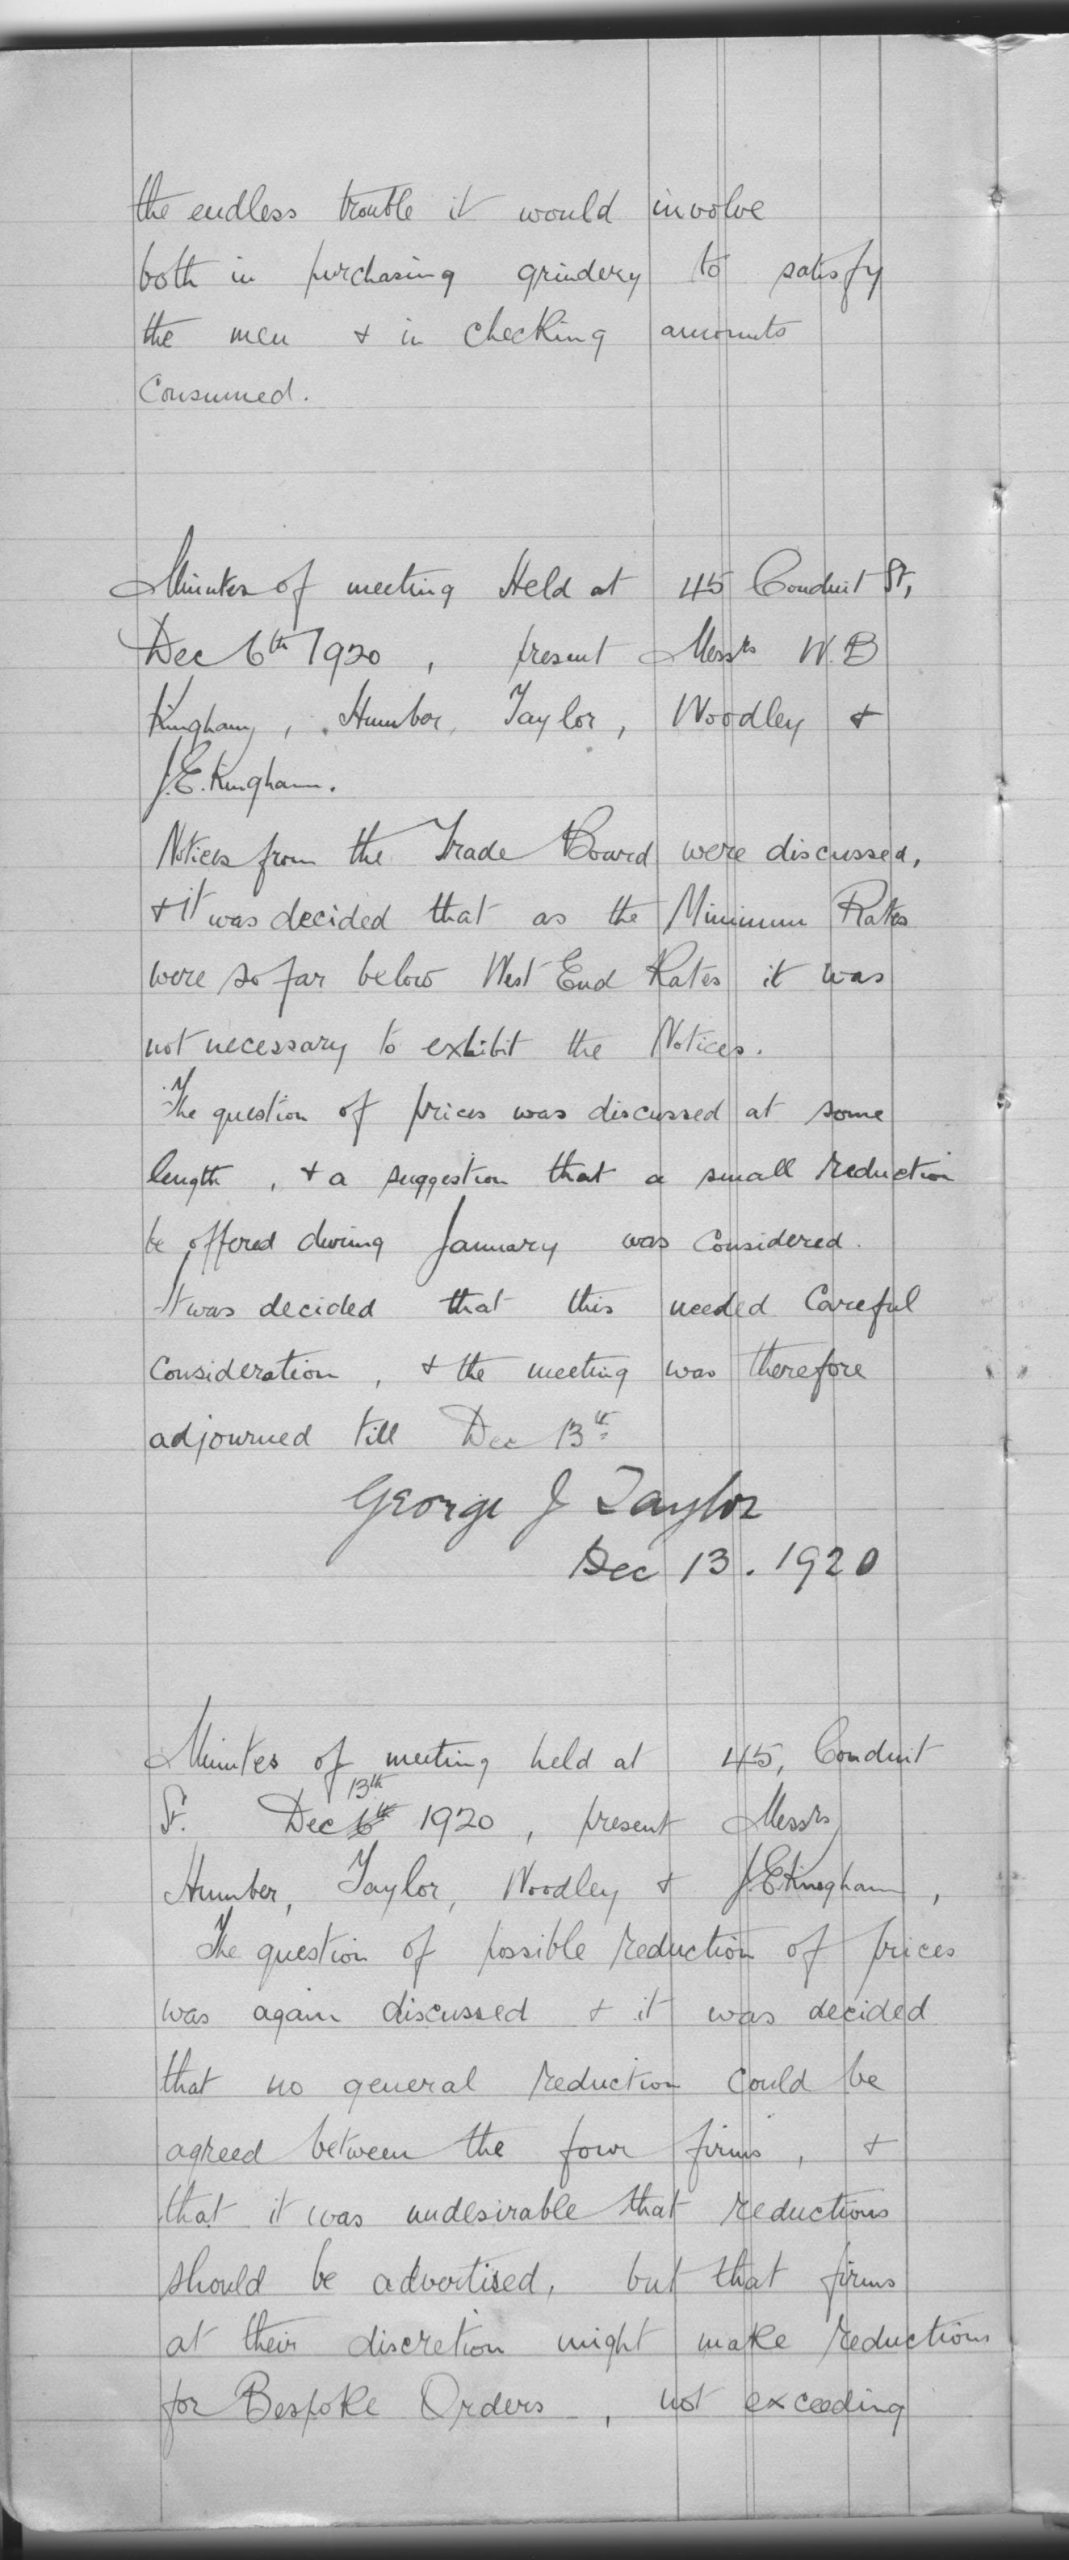 the endless trouble it would involve
both in purchasing grindery to satisfy
the men & in checking amounts
Consumed.
Minutes of meeting Held at 45 Conduit St,
Dec 6th 1920, present Messrs W.B
Kingham, Humber, Taylor, Woodley &
J.E. Kingham.
Notices from the Trade Board were discussed,
& it was decided that as the Minimum Rates
were so far below West End Rates it was
not necessary to exhibit the Notices.
The question of prices was discussed at some
length, & a suggestion that a small reduction
be offered during January was considered.
It was decided that this needed Careful
Consideration, & the meeting was therefore
adjourned till Dec 13th
George J Taylor
Dec 13. 1920
Minutes of meeting held at 45, Conduit
13th
St. Dec 6th 1920, present Messrs
Humber, Taylor, Woodley & J.E. Kingham,
The question of possible reduction of prices
was again discussed & it was decided
that no general reduction could be
agreed between the four firms, &
that it was undesirable that reductions
should be advertised, but that firms
at their discretion might make reductions
for Bespoke Orders, not exceeding